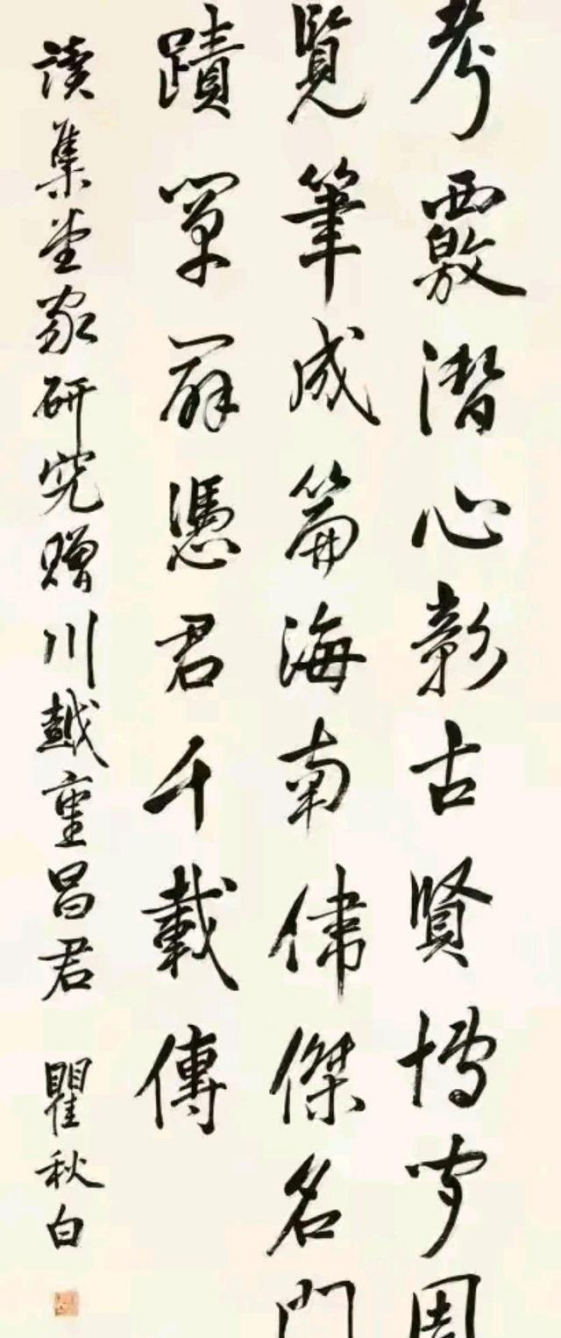 考覈潛心彰古賢博聞周
覽筆成篇海南偉傑名門
蹟闡憑君千載傳
讀集堂家研究贈川越重昌君 瞿秋白